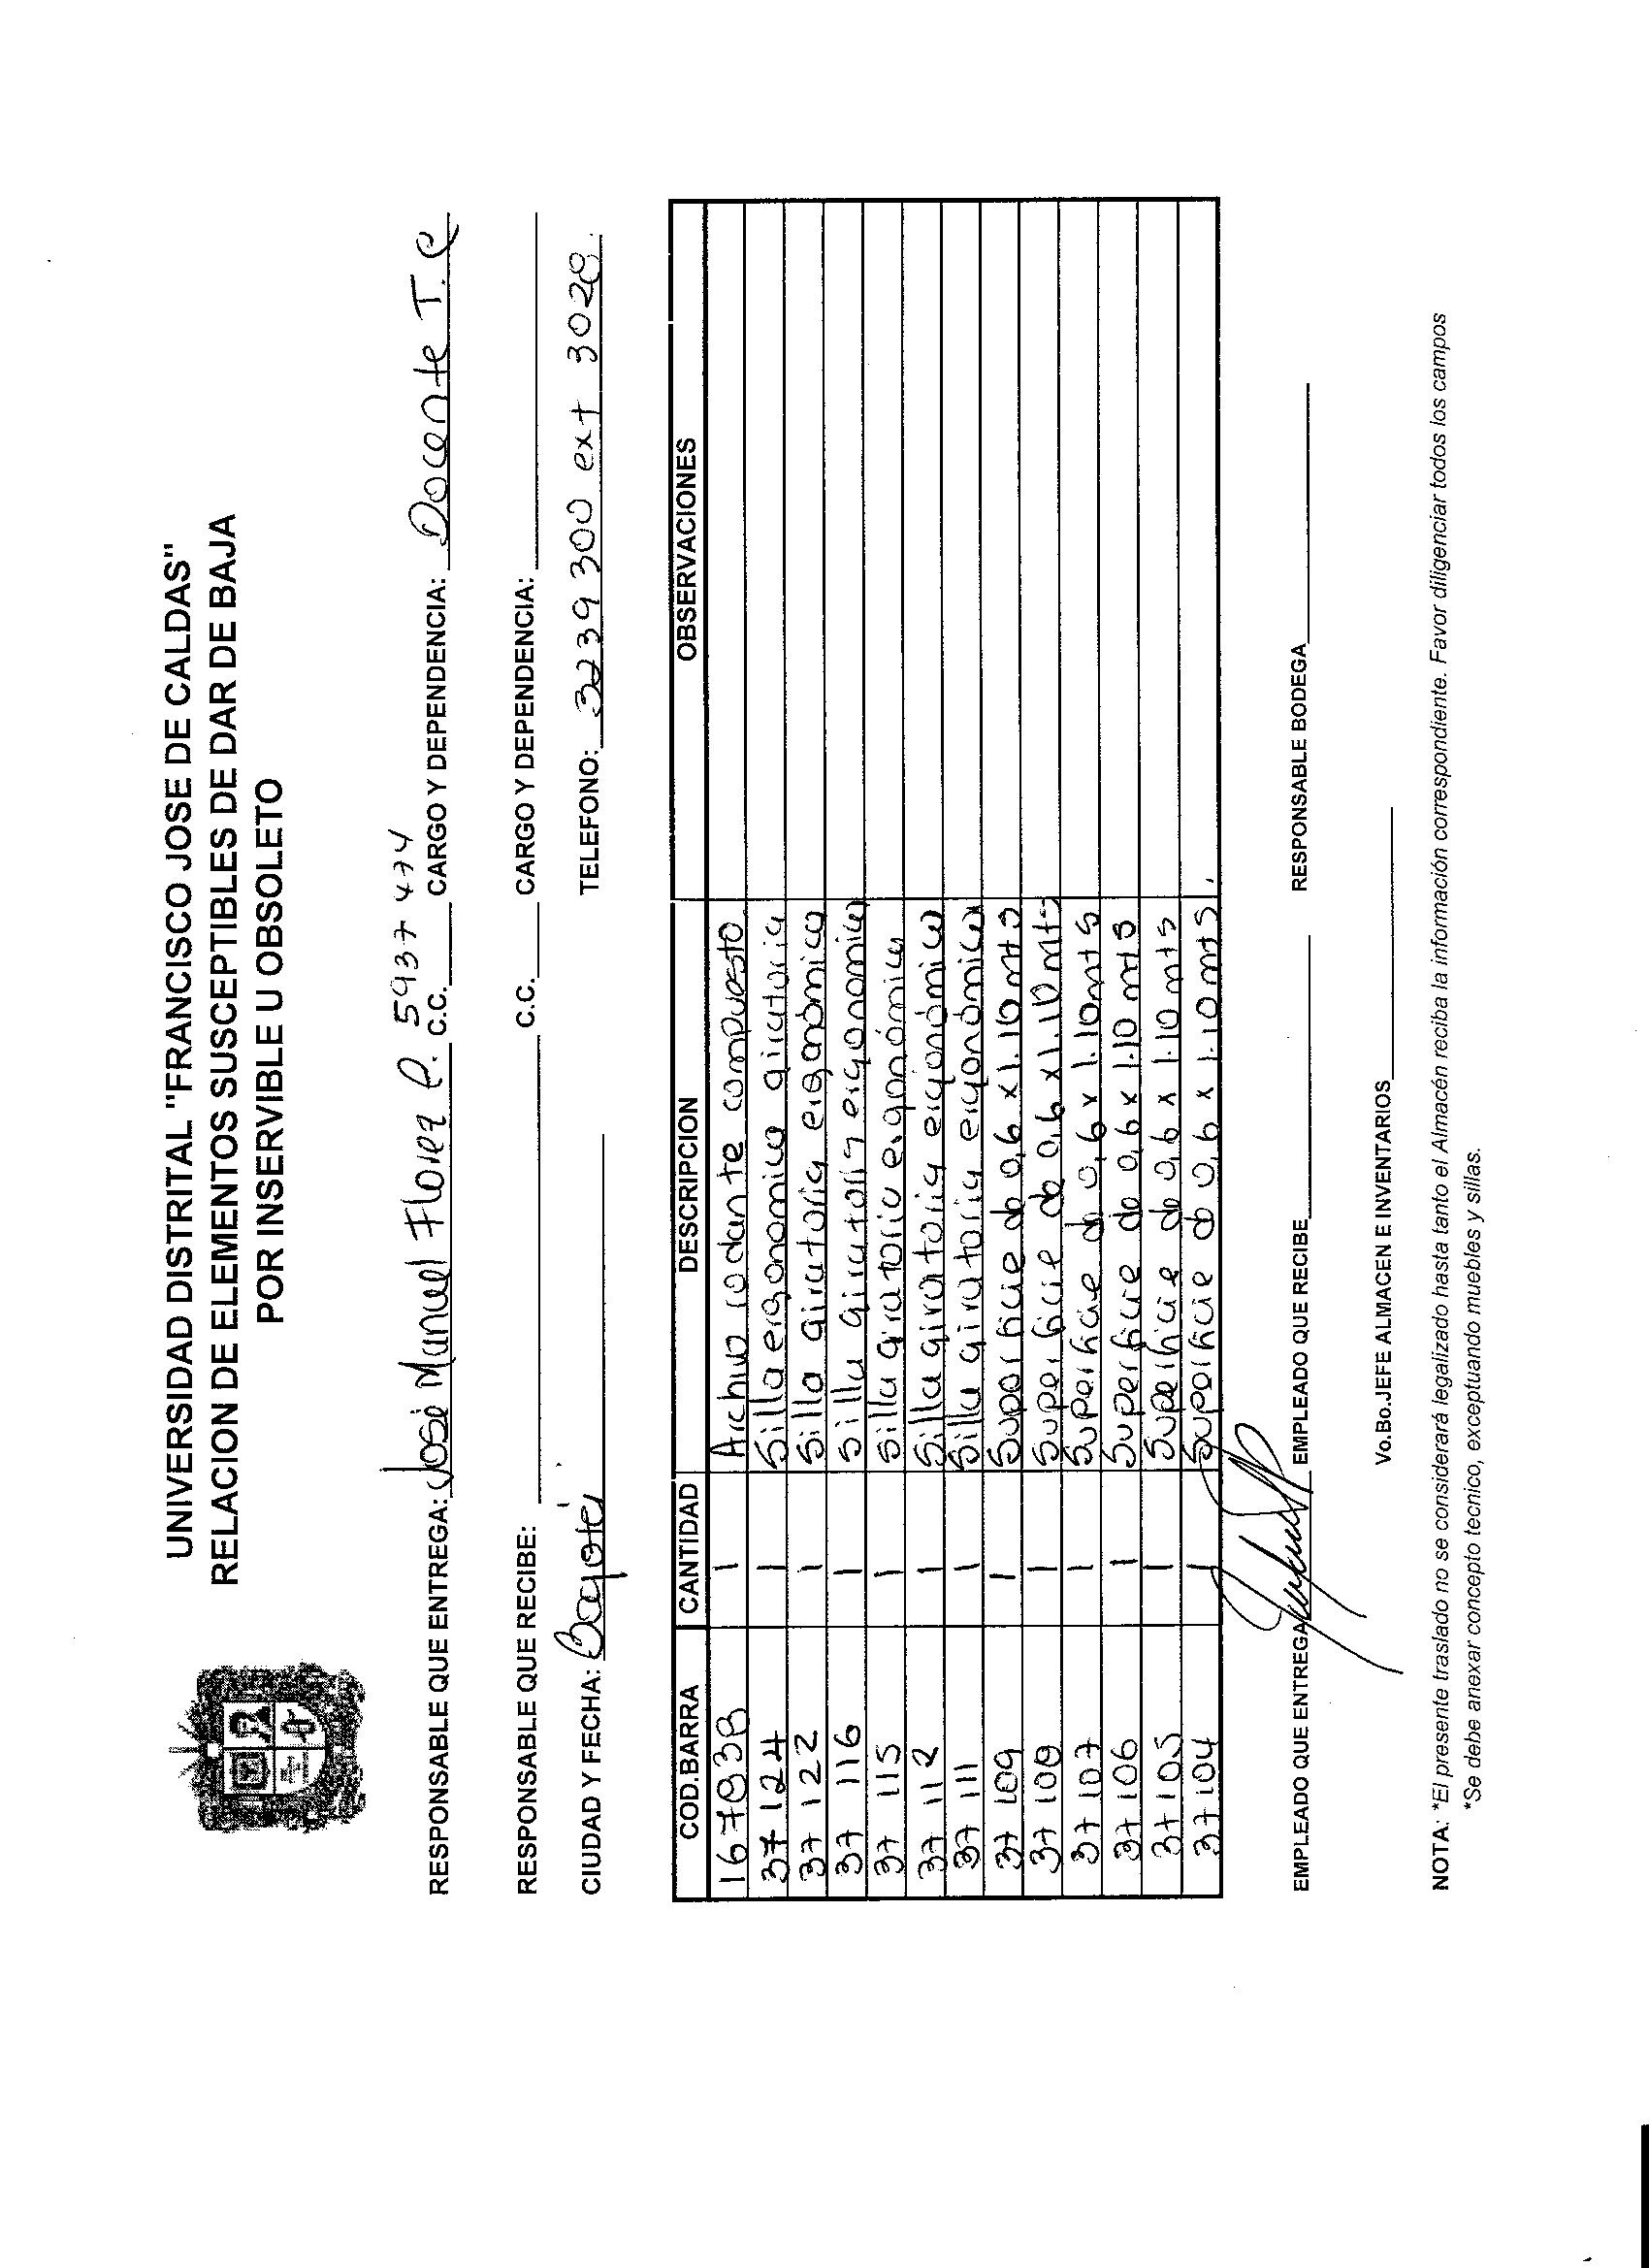 UNIVERSIDAD DISTRITAL "FRANCISCO JOSE DE CALDAS"
RELACION DE ELEMENTOS SUSCEPTIBLES DE DAR DE BAJA
POR INSERVIBLE U OBSOLETO
RESPONSABLE QUE ENTREGA: José Manuel Florez P. C.C. 5937474 CARGO Y DEPENDENCIA: Docente T.C
RESPONSABLE QUE RECIBE: C.C. CARGO Y DEPENDENCIA:
CIUDAD Y FECHA: Bogotá TELEFONO: 3239300 ext 3028.
COD.BARRA CANTIDAD DESCRIPCION OBSERVACIONES
1 Archivo rodante compuesto
37124 1 Silla ergonomica giratoria
37122 1 Silla giratoria ergonómica
37116 1 Silla giratoria ergonomica
37115 1 Silla giratoria ergonómica
37112 1 Silla giratoria ergonómica
37111 1 Silla giratoria ergonómica
37109 1 Superficie de 0,6 x 1.10 mts
1 Superficie de 0,6 x 1.10 mts
37107 1 Superficie de 0,6 x 1.10 mts
37106 1 Superficie de 0,6 x 1.10 mts
37105 1 Superficie de 0,6 x 1.10 mts
37104 1 Superficie de 0,6 x 1.10 mts.
EMPLEADO QUE ENTREGA EMPLEADO QUE RECIBE RESPONSABLE BODEGA
Vo.Bo.JEFE ALMACEN E INVENTARIOS
NOTA: *El presente traslado no se considerará legalizado hasta tanto el Almacén reciba la información correspondiente. Favor diligenciar todos los campos
*Se debe anexar concepto tecnico, exceptuando muebles y sillas.